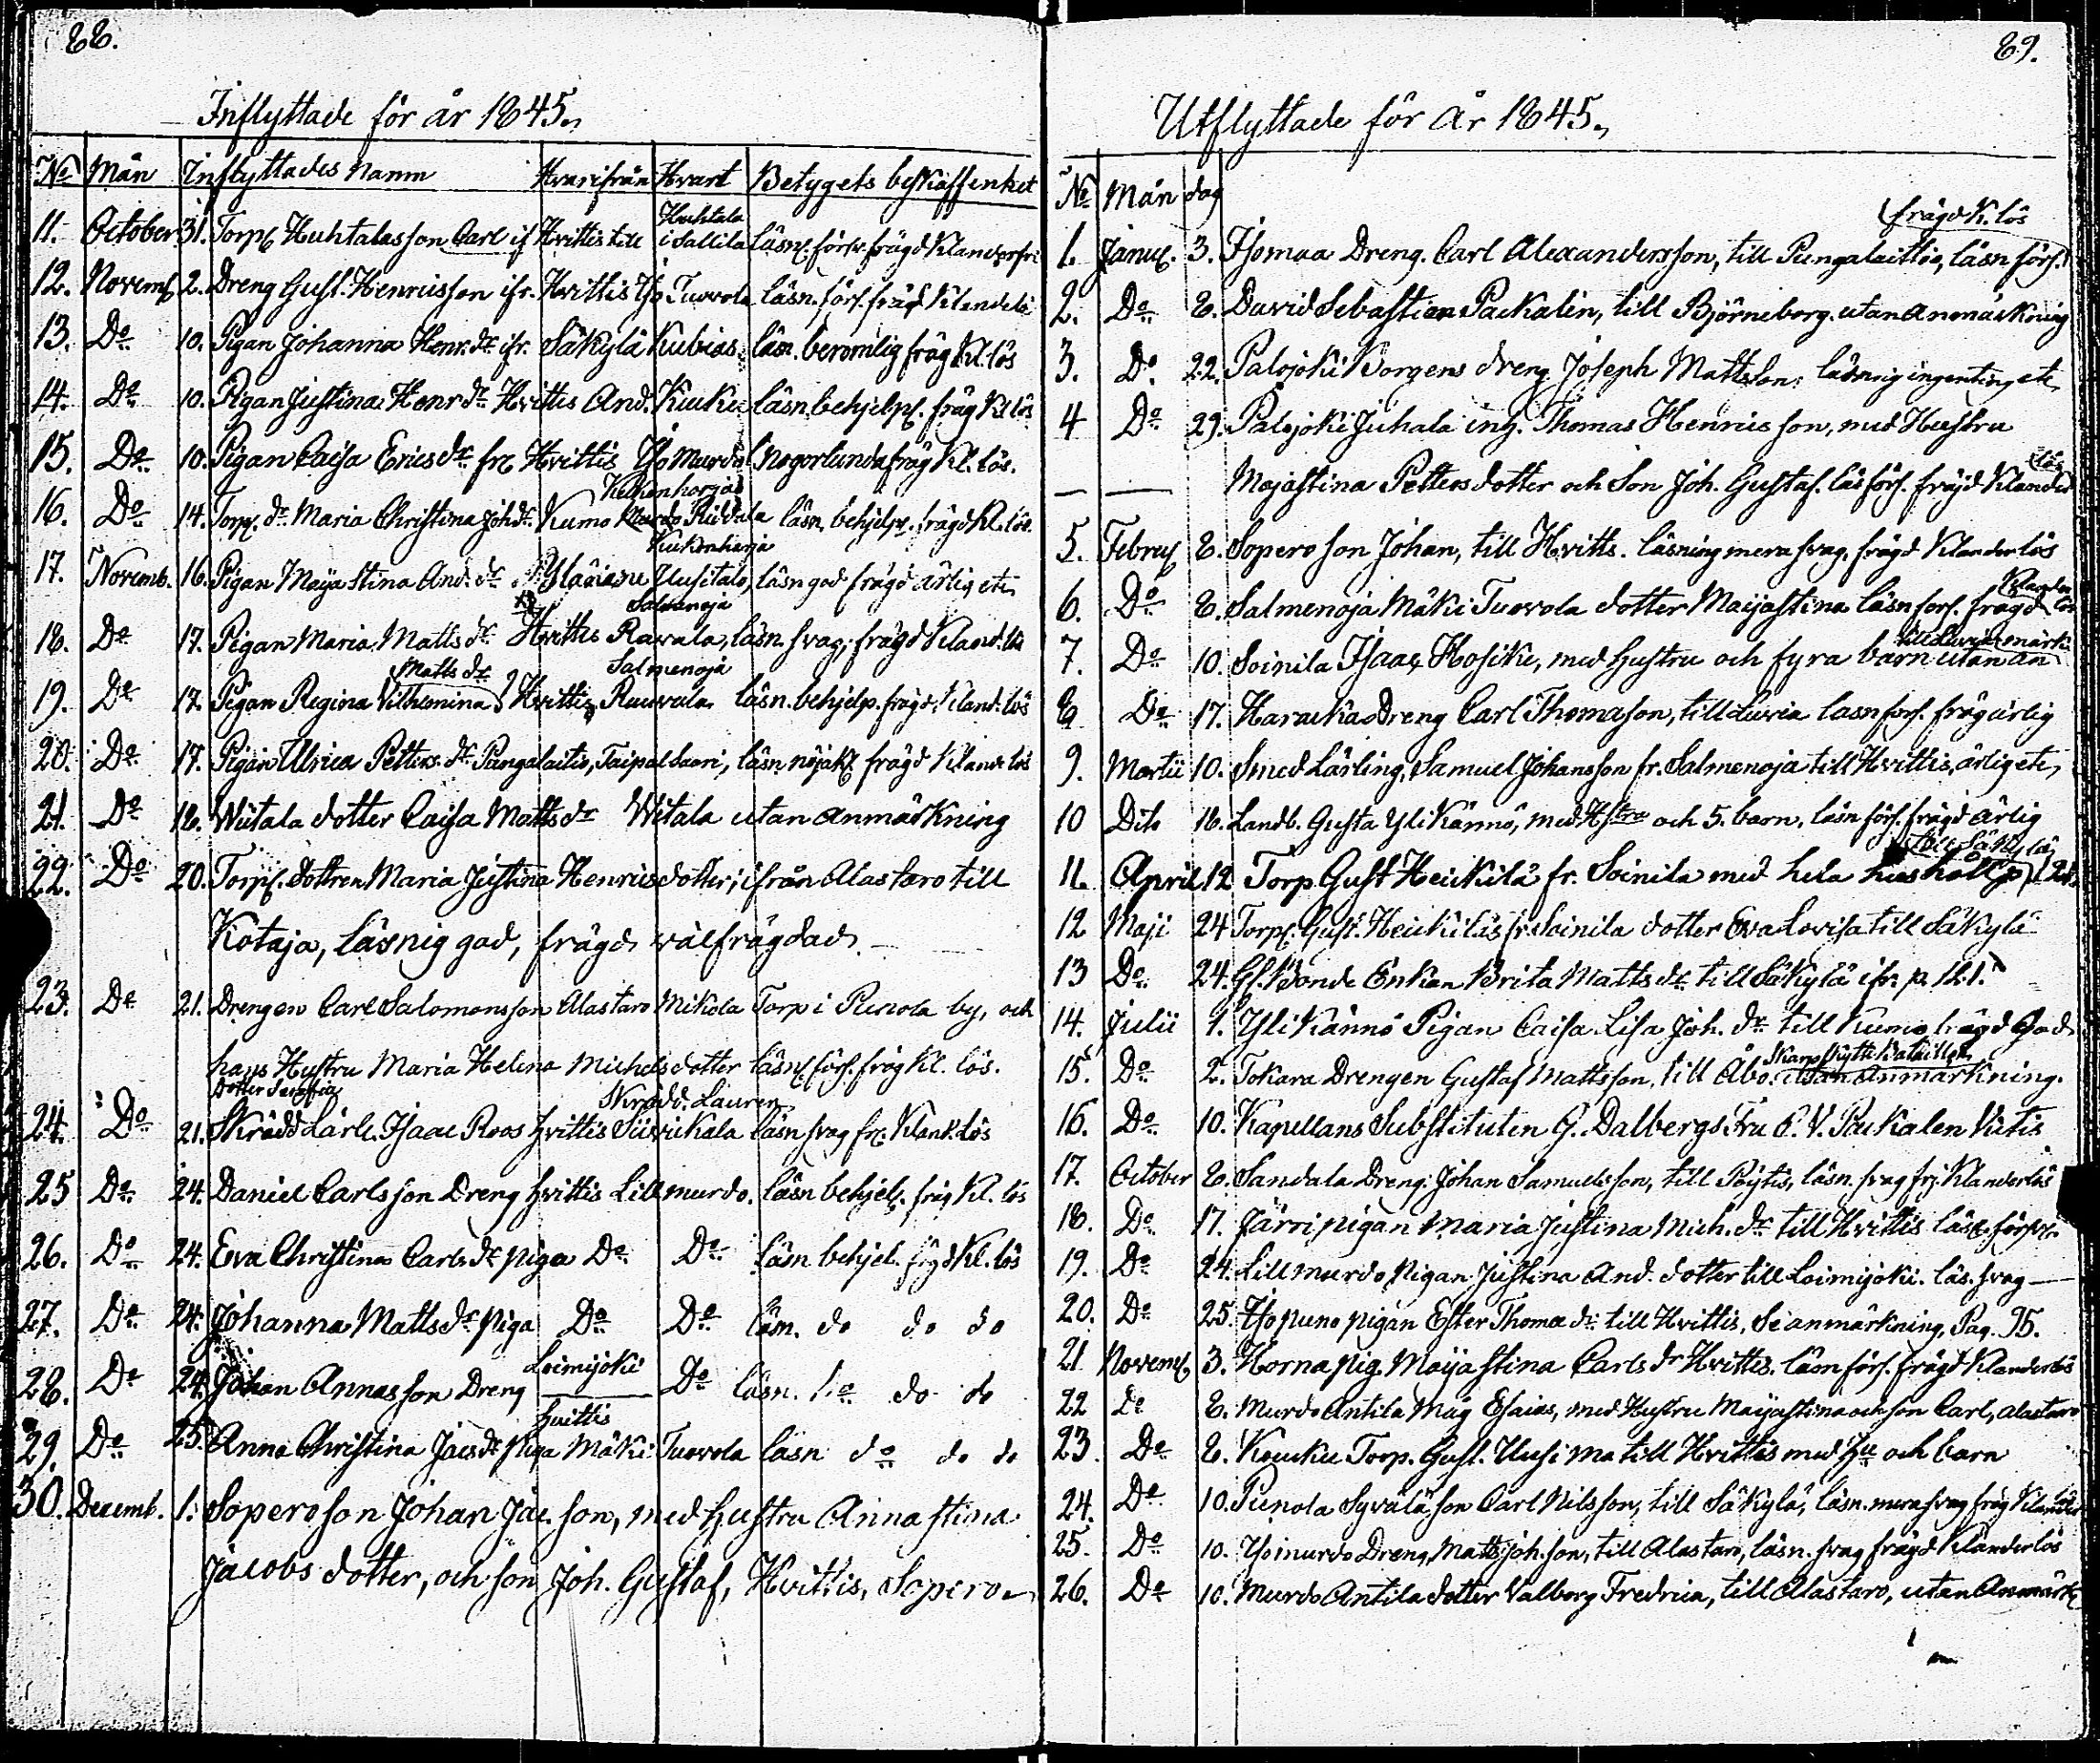 88.
Inflyttade för år 1845.
No Mån Inflyttades namn Hvarifrån Hvart Betygets beskaffenhet
Huhtala
11. October 31. Torp. Huhtalasson Carl if Hvittis till i Sallila läsn. försv. frägd Klanderfri
12. Novemb. 2. Dreng Gust. Henricsson ifr. Hvittis Tuovola läsn. förs. fräg Klanderlö
13. Do 10. Pigan Johanna Henr. dr ifr. Säkylä Kubias, läsn. berömlig fräg Kl. lös
14. Do 10. Pigan Justina Henr dr Hvittis And. Kouku läsn behjelpl. fräg Kl lös
15. Do 10. Pigan Caisa Erics dr fr Hvittis Yso Murdo Nogorlunda fräg Kl. lös.
Keikenharja
16. Do 14. Torp. dr Maria Christina Joh dr Kumo Murdo Ridala läsn. behjelpl. frägd Kl. lös.
Kiukonharja
17. Novemb. 16. Pigan Maja Stina And. dr Yläviane Uusitalo, läsn god frägd ärlig etc
Salmenoja
18. Do 17. Pigan Maria Matts dr Hvittis Ravala, läsn. svag; frägd Kland. lös
Matts dr Salmenoja
19. Do 17. Pigan Regina Vilhemina Hvittis Rauvala läsn. behjelp. frägd. Kland. lös
20. Do 17. Pigan Ulrica Petters. dr Pungalaitio, Taipalsaari, läsn nöjakl. frägd Klande lös
21. Do 18. Wiitala dotter Caisa Matts dr Witala utan anmärkning
22. Do 20. Torp. dottren Maria Justina Henricsdotter, ifrån Alastaro till
Kotaja, läsnig god, frägd välfrägdad.
23. Do 21. Drengen Carl Salomonsson Alastaro Mikola Torp i Punola by, och
hans Hustru Maria Helena Michelsdotter läsn. förs. fräg Kl. lös.
Dotter Serafia Skrädd. Lauren
24. Do 21. Skrädd Lärl. Isaac Roos Hvittis Siivikala läsn svag fr. Klank lös
25 Do 24. Daniel Carlsson Dreng Hvittis Lillmurdo. läsn behjelp. fräg Kl. lös
26. Do 24. Eva Christina Carls dr piga Do Do läsn behjel. frägd Kl. lös
27. Do 24. Johanna Matts dr piga Do Do läsn. do do do
Loimijoki
28. Do 24. Johan Annasson Dreng Do läsn. do do do
Hvittis
29. Do 25. Anna Christina Jacs dr piga Mäki Tuovola läsn do do do
30. Decemb. 1. Soperoson Johan Jac. son, med Hustru Annastina
Jacobs dotter, och son Joh. Gustaf, Hvittis, Sopero
89.
Utflyttade för år 1845.
No Mån dag
frägd K. lös
1. Januc. 3. Isomaa Dreng. Carl Alexandersson, till Pungalaitio, läsn förs.
2. Do 8. David Sebastian Packalén, till Björneborg. utan anmärkning
3. Do 22. Palojoki Borgens dreng Joseph Mattsson: läsnig ingenting etc
4 Do 29. Palojoki Juhala inh. Thomas Henricsson, med Hustru
lös
Majastina Petters dotter och Son Joh. Gustaf. läs förs. fräjd Klander
5. Febru. 8. Sopero son Johan, till Hvitts. läsning mera svag, frägd Klanderlös
Klander
6. Do 8. Salmenoja Mäki Tuovola dotter Maijastina läsn fors. frägd lös
till Luvia märk
7. Do 10. Soinila Isaac Hosike, med hustru och fyra barn utan an
8 Do 17. Harackas Dreng Carl Thomason, till Luvia läsn fors. fräg ärlig
9. Martii 10. Smed Lärling, Samuel Johansson fr. Salmenoja till Hvittis, ärlig etc,
10 Dito 16. Landb. Gusta Ylikännö, med Hstru och 5. barn, läsn förs. frägd ärlig
till Säkylä
11. April 12 Torp. Gust Heickilä fr. Soinila med hela hushåll
12 Maji 24 Torp. Gust. Heickiläs fr. Soinila dotter Eva Lovisa till Säkylä
13 Do 24. Gl. Bonde Enkan Brita Matts dr till Säkylä ifr. p. 121.
14. Julii 1. Ylikännö Pigan Caisa Lisa Joh. dr till Kumo frägd God
Skarpskytte Bataillon
15. Do 2. Tokara Drengen Gustaf Mattsson, till Åbo. utan anmärkning.
16. Do 10. Kapellans Substituten G. Dalbergs Fru C. V. Packalen Vutis
17. October 8. Sandala Dreng: Johan Samuelsson, till Pöytis, läsn. svag frj. Klanderlös
18. Do 17. Järvi pigan Maria Justina Mich. dr till Hvittis läsn. försv.
19. Do 24. Lillmurdo Pigan Justina And. dotter till Loimijoki. läs. svag
20. Do 25. Yso puno pigan Ester Thoma dr till Hvittis, Se anmärkning, Pag. 95.
21 Novemb. 3. Horna pig. Maijastina Carls dr Hvittis. läsn förs. frägd Klanderlös
22 Do 8. Murdo Antila Måg Esaias, med Hustru Maijastina och son Carl, alastaro
23 Do 8. Kouku Torp. Gust. Uusi ma till Hvittis med Hu och barn
24. Do 10. Punola Syvälä son Carl Nilsson, till Säkylä, läsn. mera svag fräg Klander
25. Do 10. Yso murdo Dreng, Matts Joh. son, till Alastaro, läsn. svag frägd Klanderlös
26. Do 10. Murdo Antila dotter Valborg Fredrica, till Alastaro, utan Anmärk